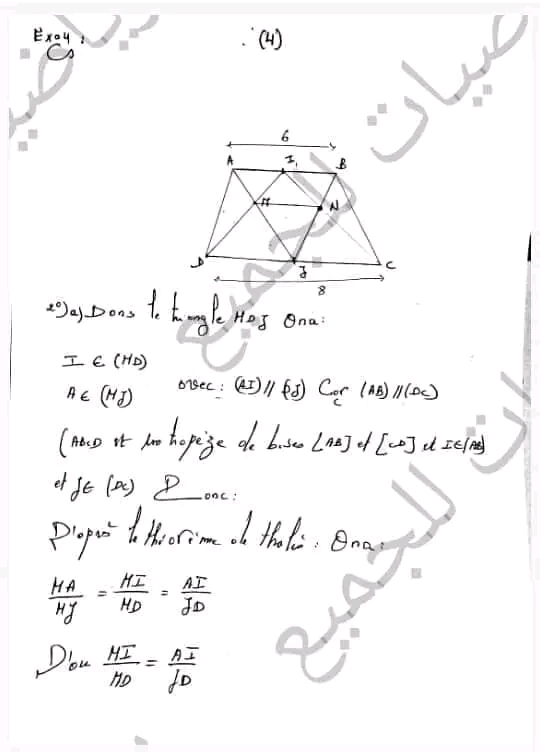 Exo4 :
(4)
6
A I B
M N
D J C
8
2°)a) Dans le triangle MDJ Ona:
I ∈ (MD)
A ∈ (MJ) avec : (AI) // (DJ) Car (AB) // (DC)
(ABCD est un trapèze de bases [AB] et [CD] et I∈[AB]
et J∈ (DC) Donc:
D'après le théorème de thalès : Ona:
MA/MJ = MI/MD = AI/JD
D'ou MI/MD = AI/JD
رياضيات للجميع